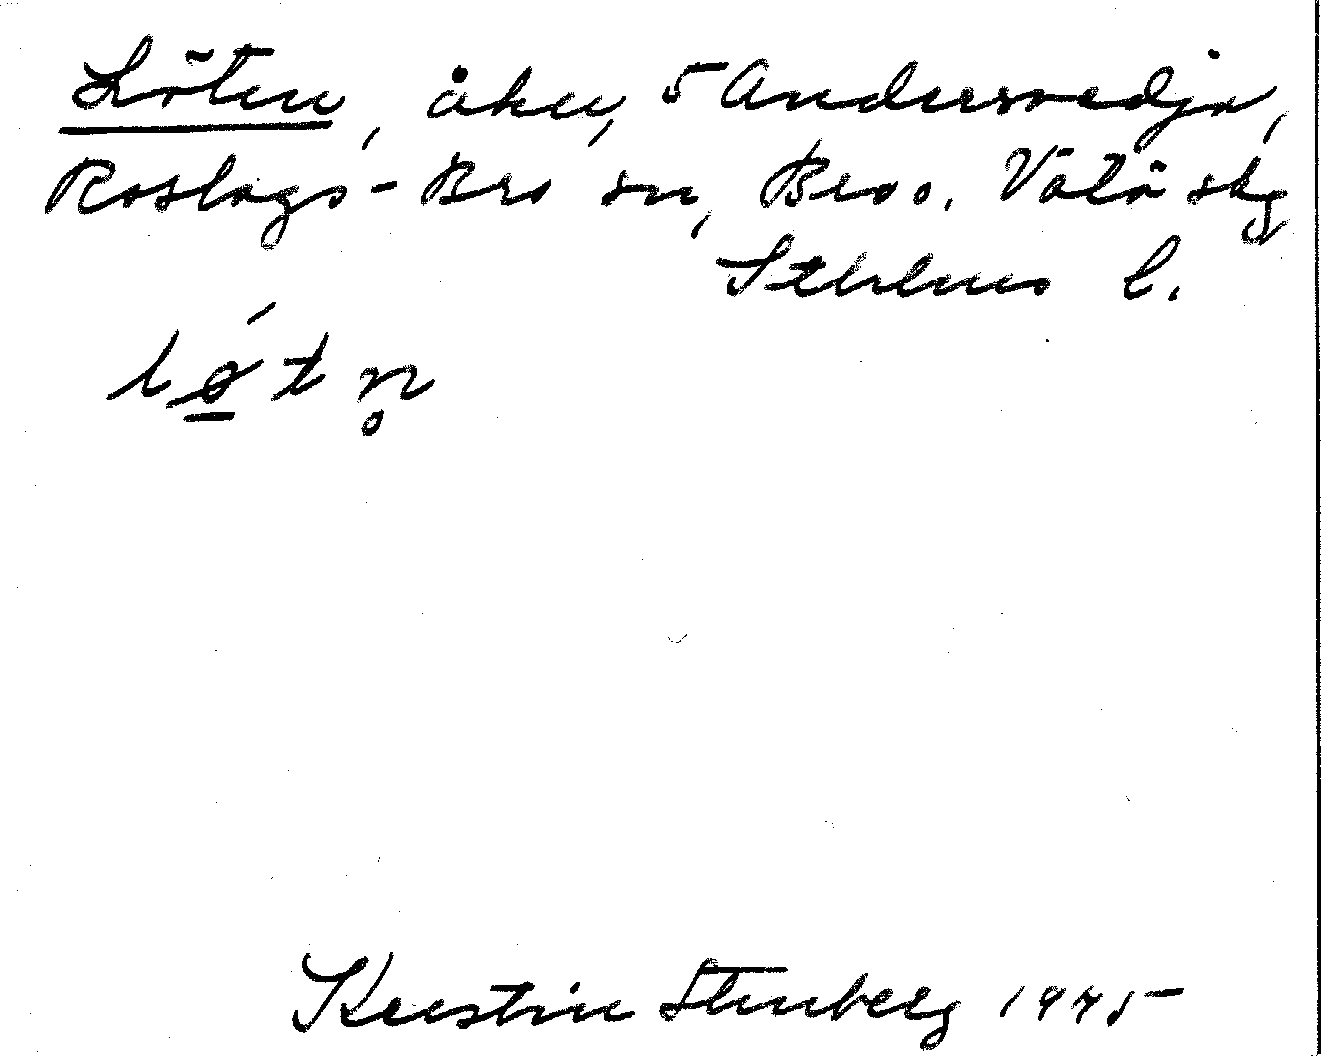 Löten, åker, 5 Andersvedja,
Roslags-Bro sn, Bro o. Vätö skg
Sthlms l.
lǿ̲tn̥
Kerstin Stenberg 1945